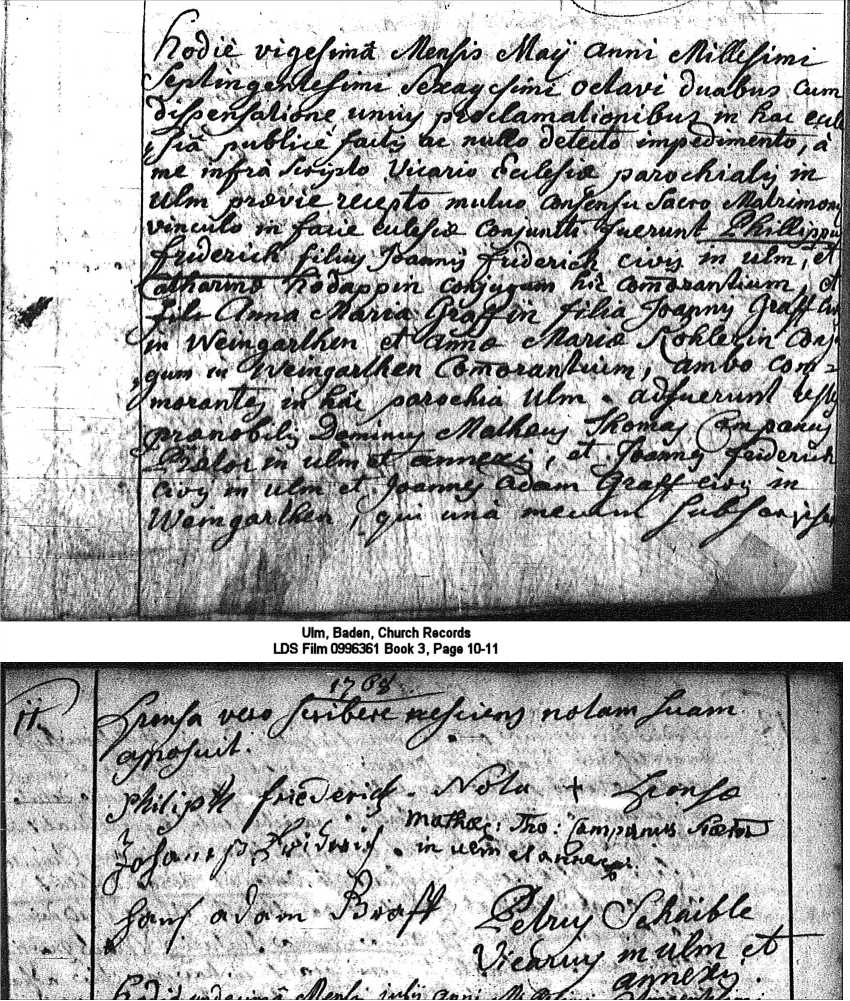 hodie vigesimâ Mensis Maÿ anni Millesimi
Septingentesimi Sexagesimi octavi duabus cum
dispensatione unius proclamationibus in hac eccle
siâ publice factis ac nullo detecto impedimento, à
me infrà scripto Vicario Ecclesiæ parochialis in
Ulm prævie recepto mutuo consensu Sacro Matrimony
vinculo in facie ecclesiæ conjuncti fuerunt Phillippus
friderich filius Joannis friderich civis in ulm, et
Catharinæ hodappin conjugum hic comorantium, et
Anna Maria Graffin filia Joannis Graff
in Weingarthen et annæ Mariæ Kohlerin conju
gum in Weingarthen Comorantium, ambo com=
morantes in hâc parochia Ulm. adfuerunt testes
prænobilis Dominus Matheus Thomas Campanus
Prætor in ulm et annexis, et Joannes friderich
civis in ulm et Joannes adam Graff civis in
Weingarthen, qui unà mecum subscripse
Ulm, Baden, Church Records
LDS Film 0996361 Book 3, Page 10-11
1768
11.
Sponsa vero scribere nesciens notam suam
aposuit.
Philipp friederich. Nota + Sponsæ
Mathæs: Tho: Campanus Prætor
Johanes Fridrich. in ulm et annexis.
hans adam Graff
Petrus Schaible
Vicarius in ülm et
annexis.
hodie undecimâ Mensis julij anni